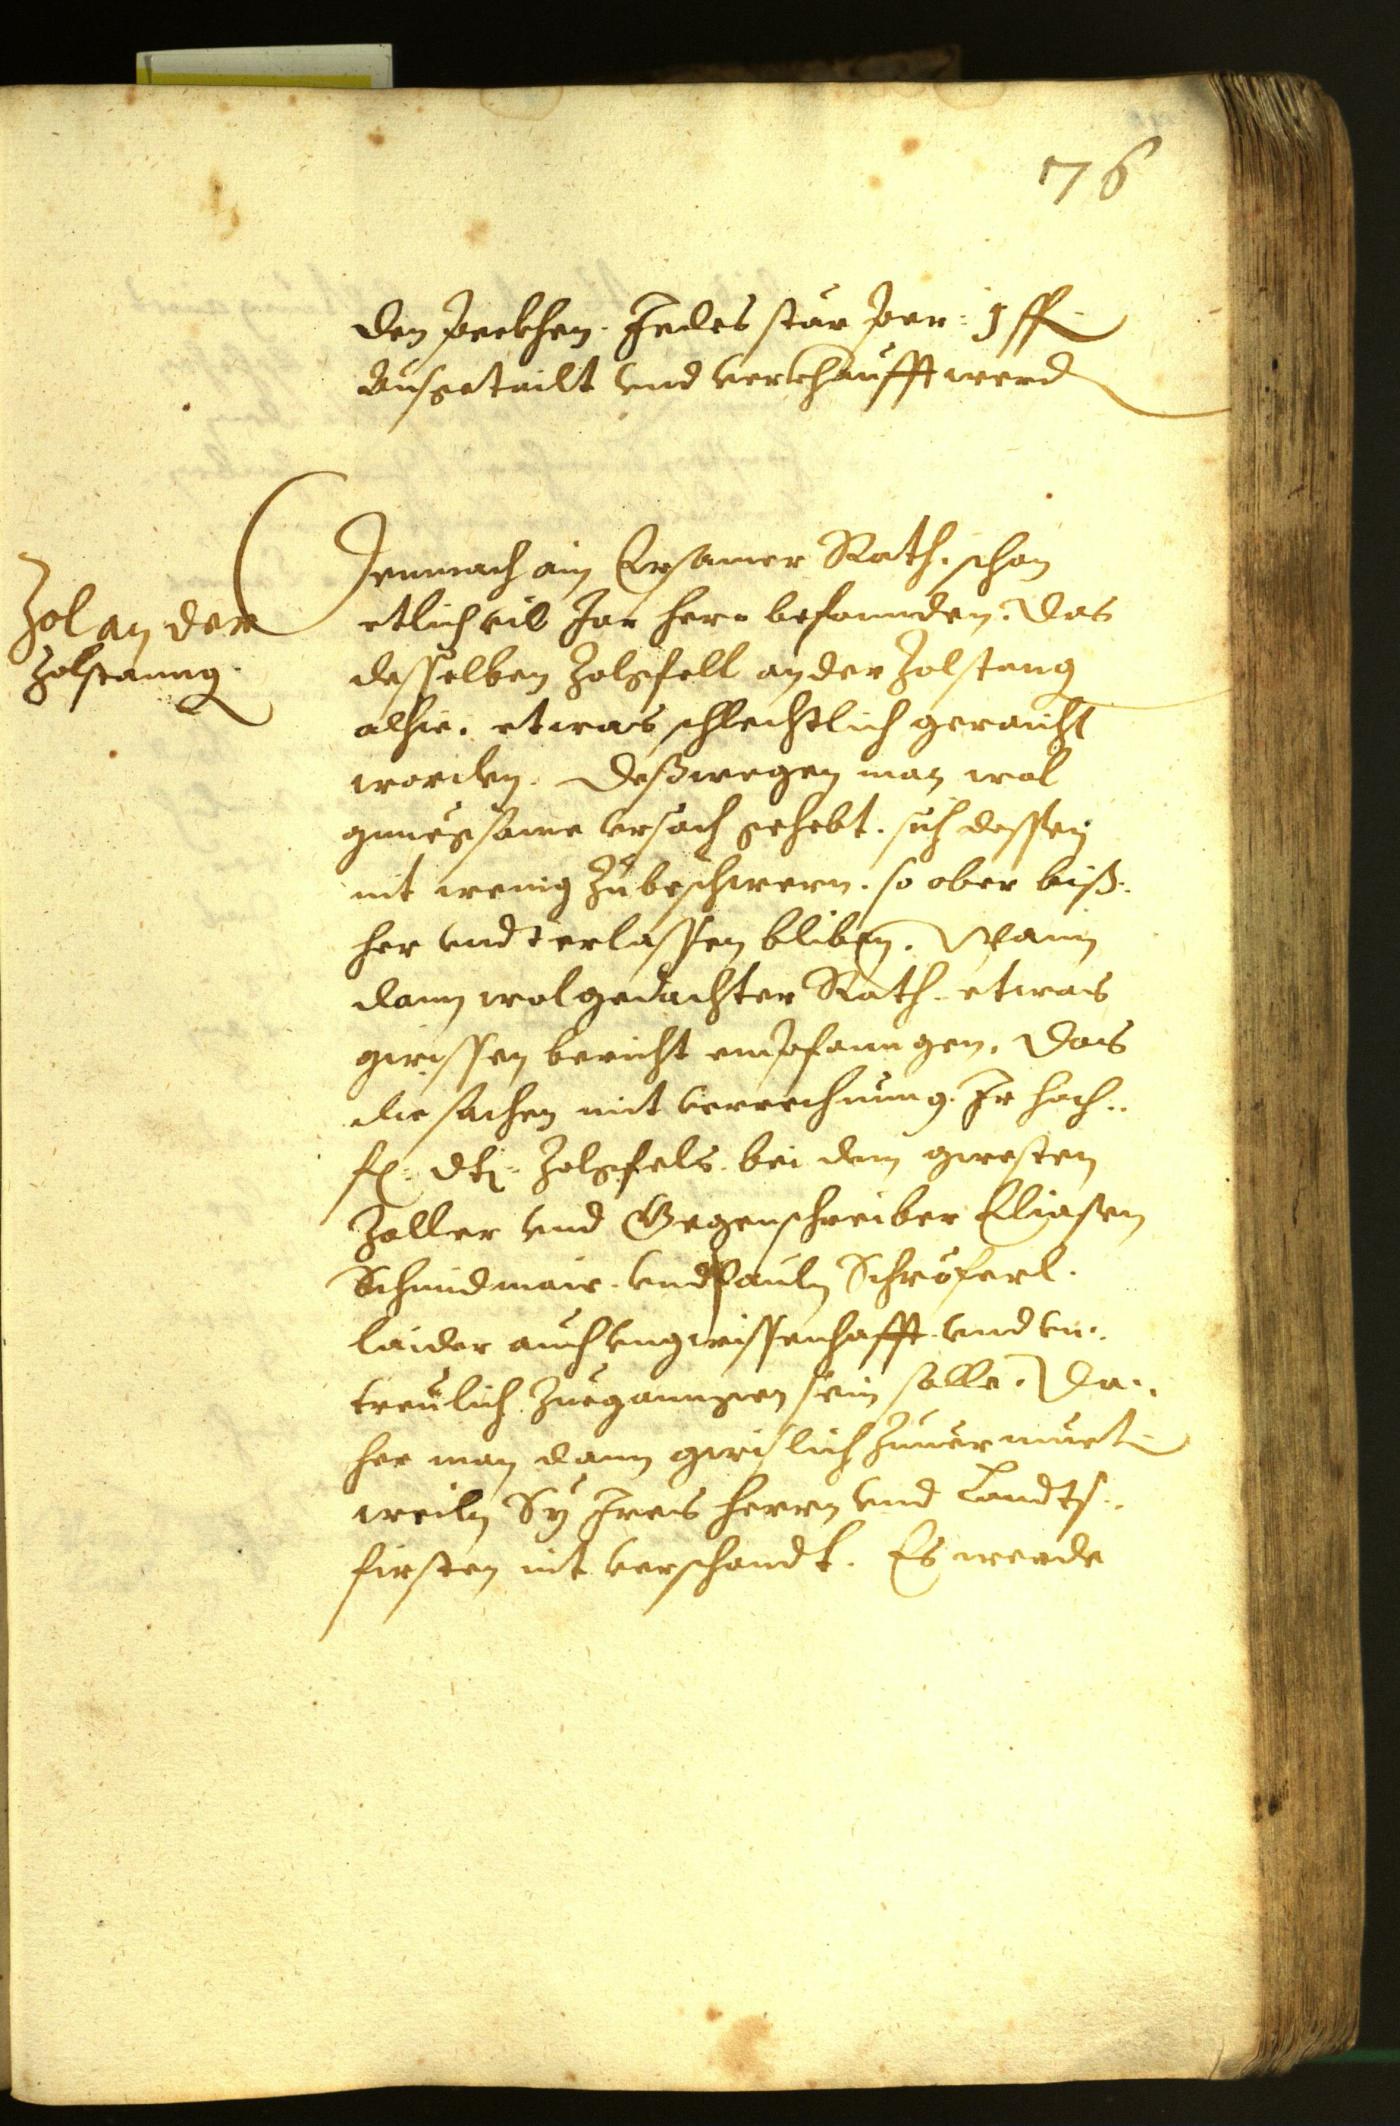 76
den Peckhen. Jedes stär per: 1 fl
Ausgetailt vnd verkhaufft werd
Zol an der
Zolstanng.
Demnach ain Ersamer Rath. schon
etlich vil Jar hero befonnden. Das
desselben Zolgfell an der Zolstang
alhie. etwas schlechtlich geraicht
worden. Deßwegen man wol
gnuegsame vrsach gehebt. sich dessen
nit wenig zubeschwern. so aber biß:
her vndterlassen bliben. Wann
dann wolgedachter Rath. etwas
gwissen bericht empfanngen. Das
die sachen mit verrechnung. Jr hoch:
fr: Dt: Zolgfels. bei dem gwesten
Zoller vnd Gegenschreiber Eliasen
Schmidmair. vnd Pauln Schröferl.
laider auch vngwissenhafft vnd vn:
treulich zueganngen sein solle. Da:
her man dann gwislich zuuermuet
weiln Sy Jres herrn vnd Landts:
firsten nit verschondt. Es werde